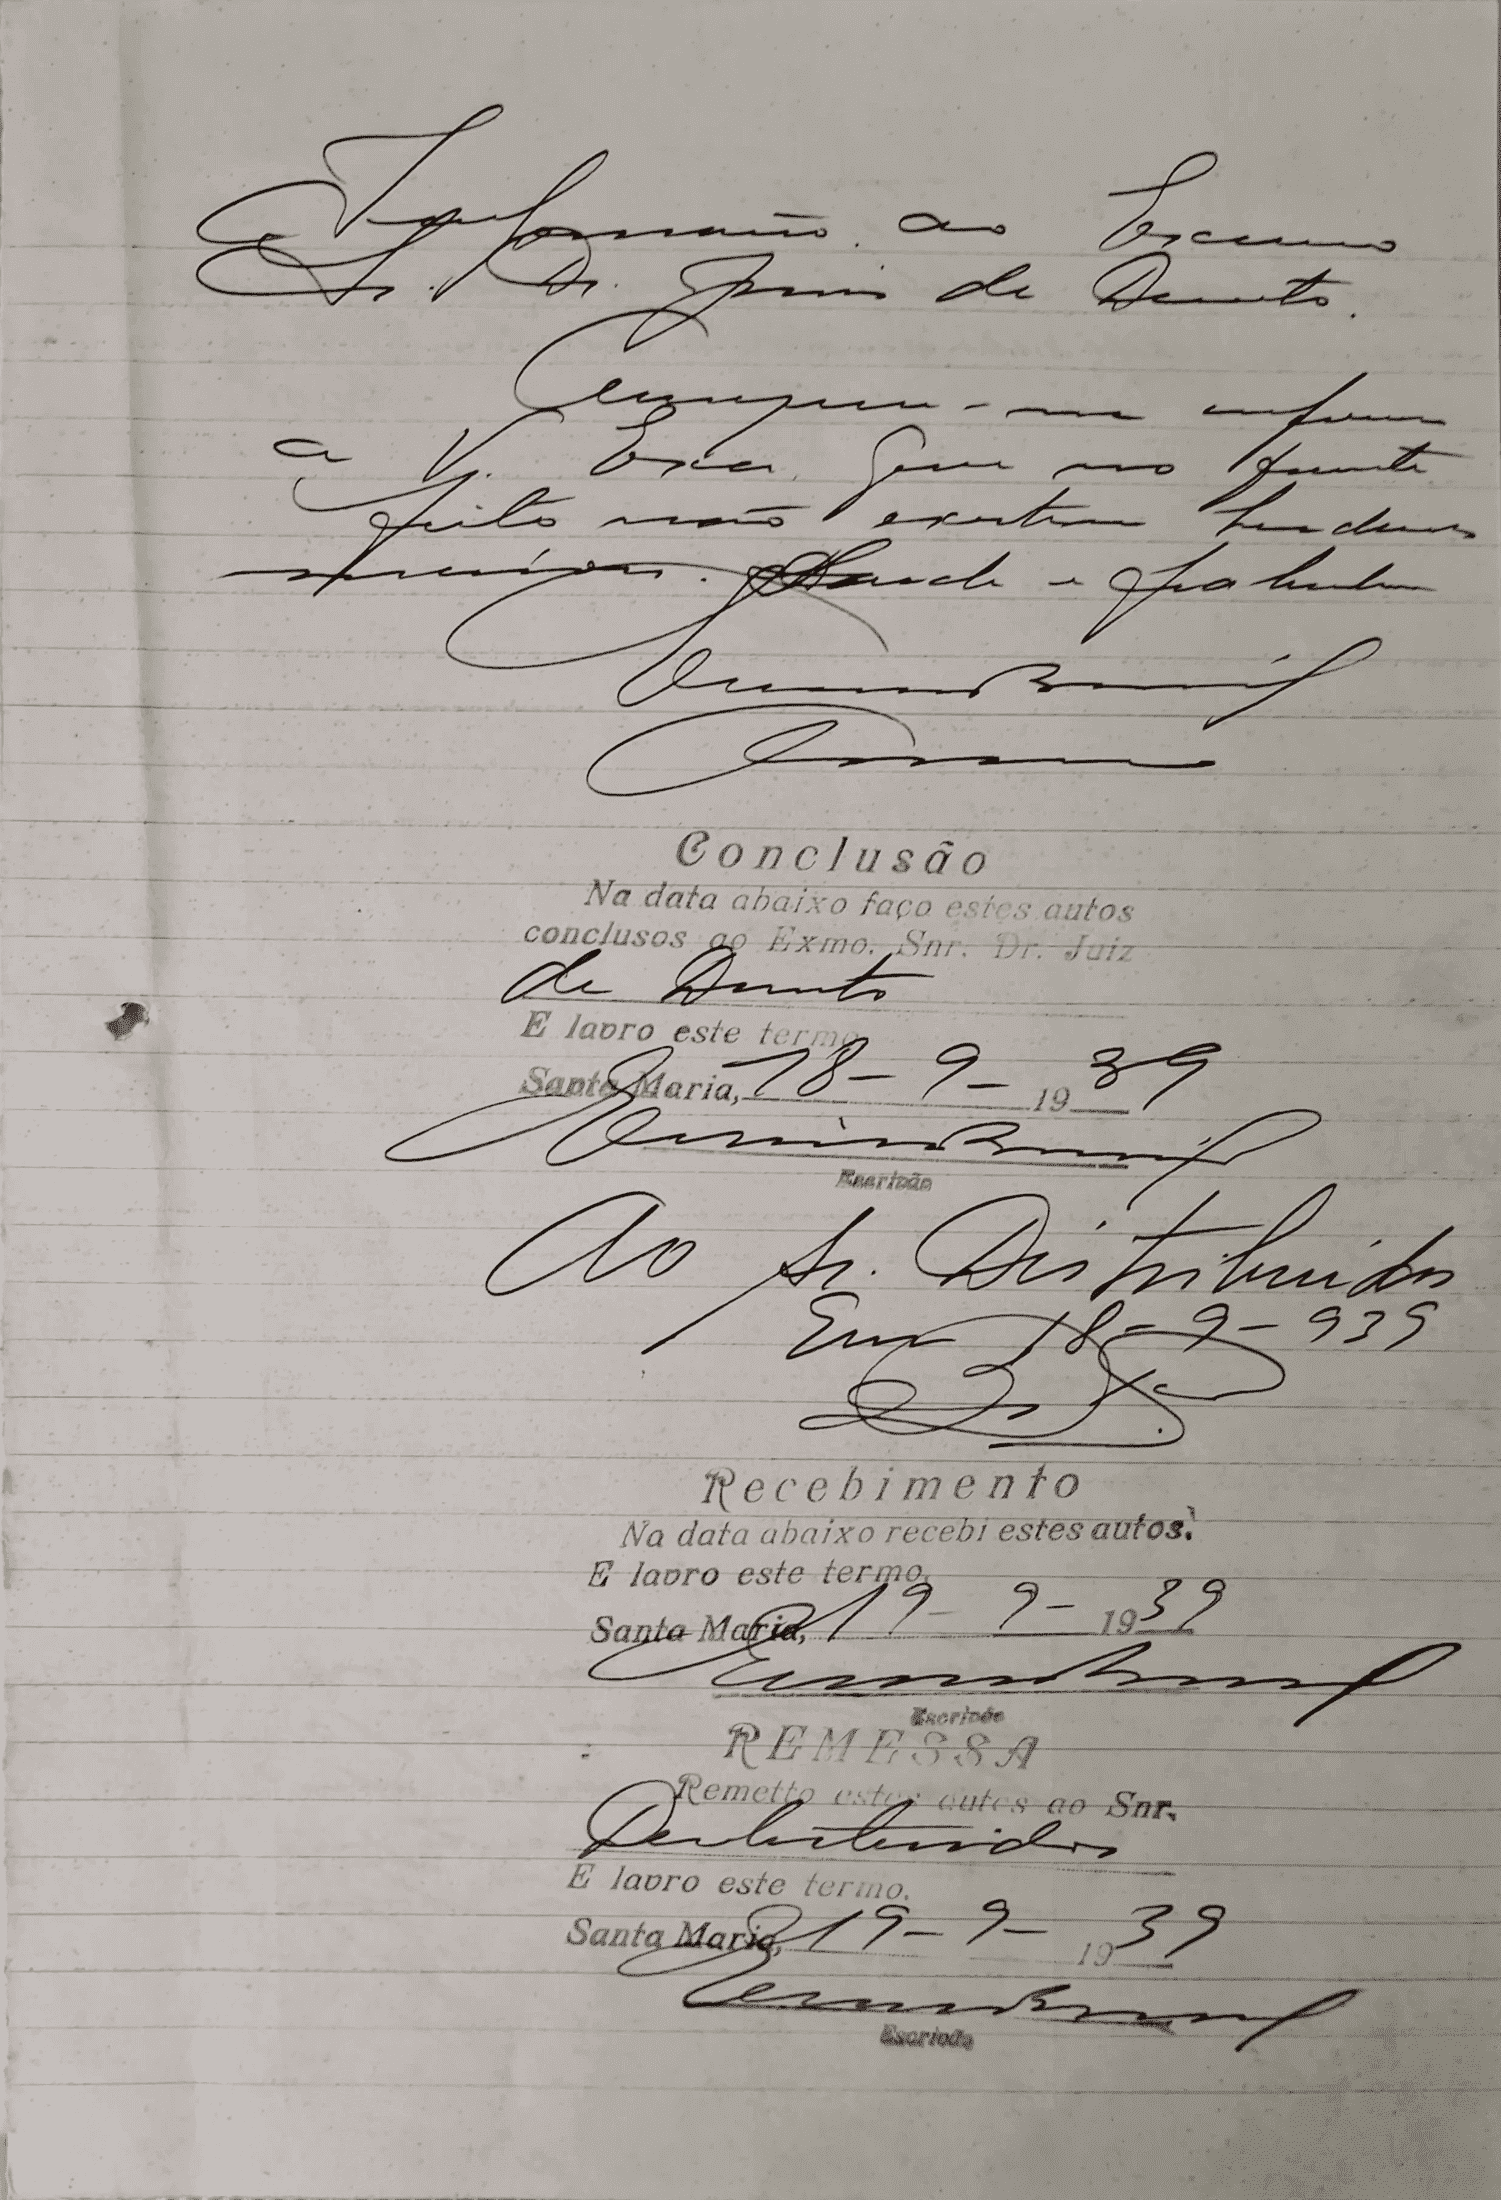 Informação ao Excmo
Sr. Dr. Juiz de Direito.
Cumpre-me informar
a V. Excia. que no presente
feito não existem herdeiros
menores. Saude e
Conclusão
Na data abaixo faço estes autos
conclusos ao Exmo. Snr. Dr. Juiz
de Direito
E lavro este termo
Santa Maria, 18-9-1939
Escrivão
Ao Sr. Distribuidor
Em 18-9-939
Recebimento
Na data abaixo recebi estes autos.
E lavro este termo.
Santa Maria, 19-9-1939
Escrivão
REMESSA
Remetto estes autos ao Snr.
Distribuidor
E lavro este termo.
Santa Maria, 19-9-1939
Escrivão